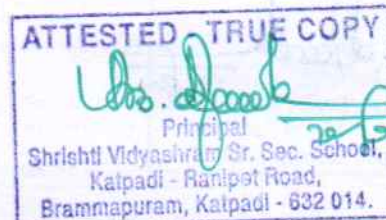 ATTESTED - TRUE COPY
Principal
Shrishti Vidyashram Sr. Sec. School,
Katpadi - Ranipet Road,
Brammapuram, Katpadi - 632 014.